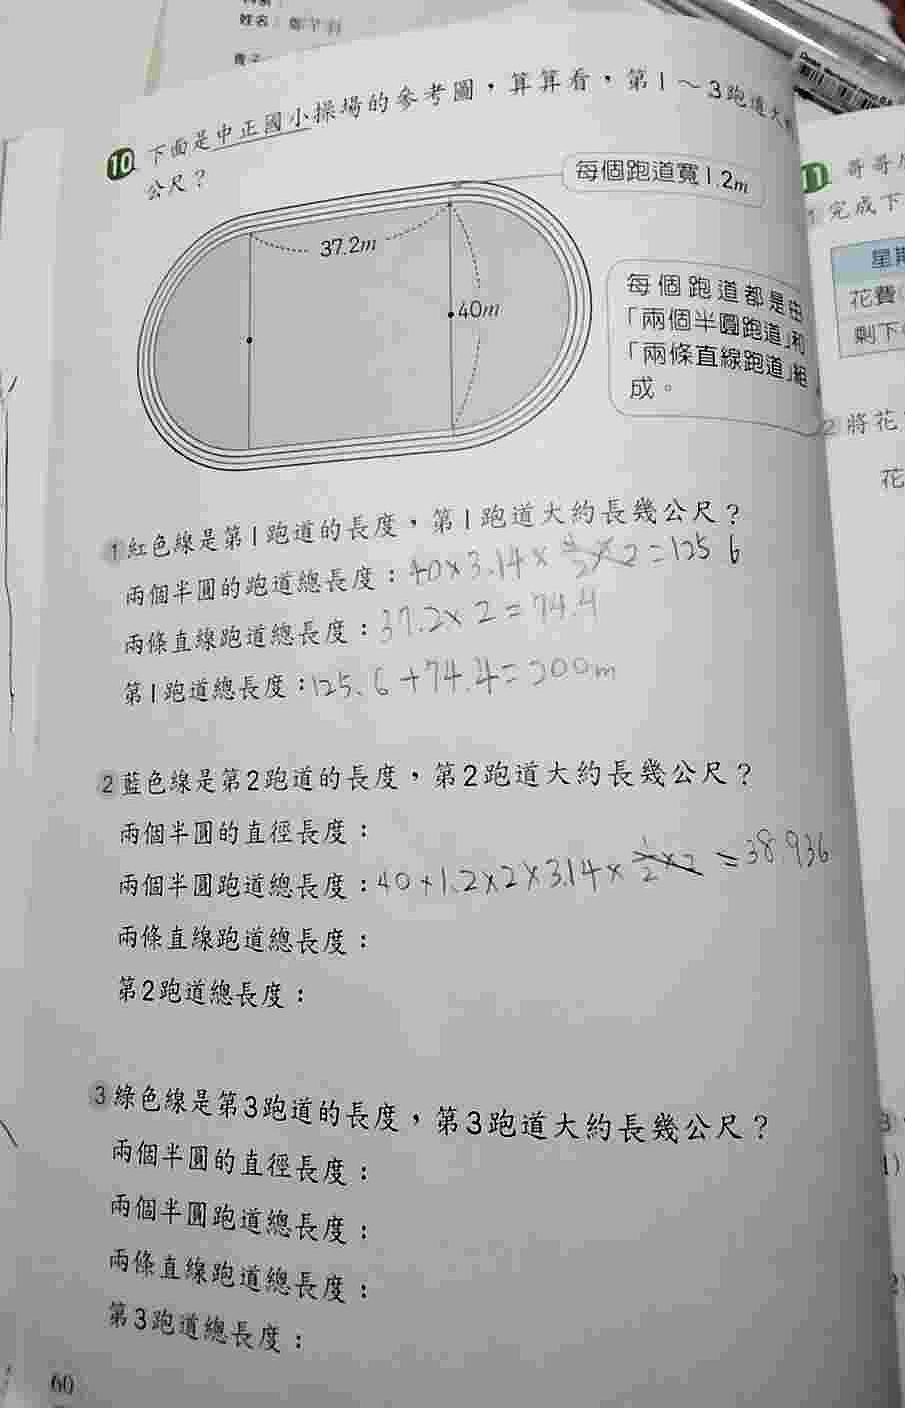 姓名：
10 下面是中正國小操場的參考圖，算算看，第1～3跑道大
公尺？
每個跑道寬1.2m
37.2m
40m
每個跑道都是由
「兩個半圓跑道」和
「兩條直線跑道」組
成。
1 紅色線是第1跑道的長度，第1跑道大約長幾公尺？
兩個半圓的跑道總長度：40×3.14×1/2×2=125.6
兩條直線跑道總長度：37.2×2=74.4
第1跑道總長度：125.6+74.4=200m
2 藍色線是第2跑道的長度，第2跑道大約長幾公尺？
兩個半圓的直徑長度：
兩個半圓跑道總長度：40+1.2×2×3.14×1/2×2=38.936
兩條直線跑道總長度：
第2跑道總長度：
3 綠色線是第3跑道的長度，第3跑道大約長幾公尺？
兩個半圓的直徑長度：
兩個半圓跑道總長度：
兩條直線跑道總長度：
第3跑道總長度：
60
11 哥哥
1 完成下
星期
花費
剩下
2 將花
花